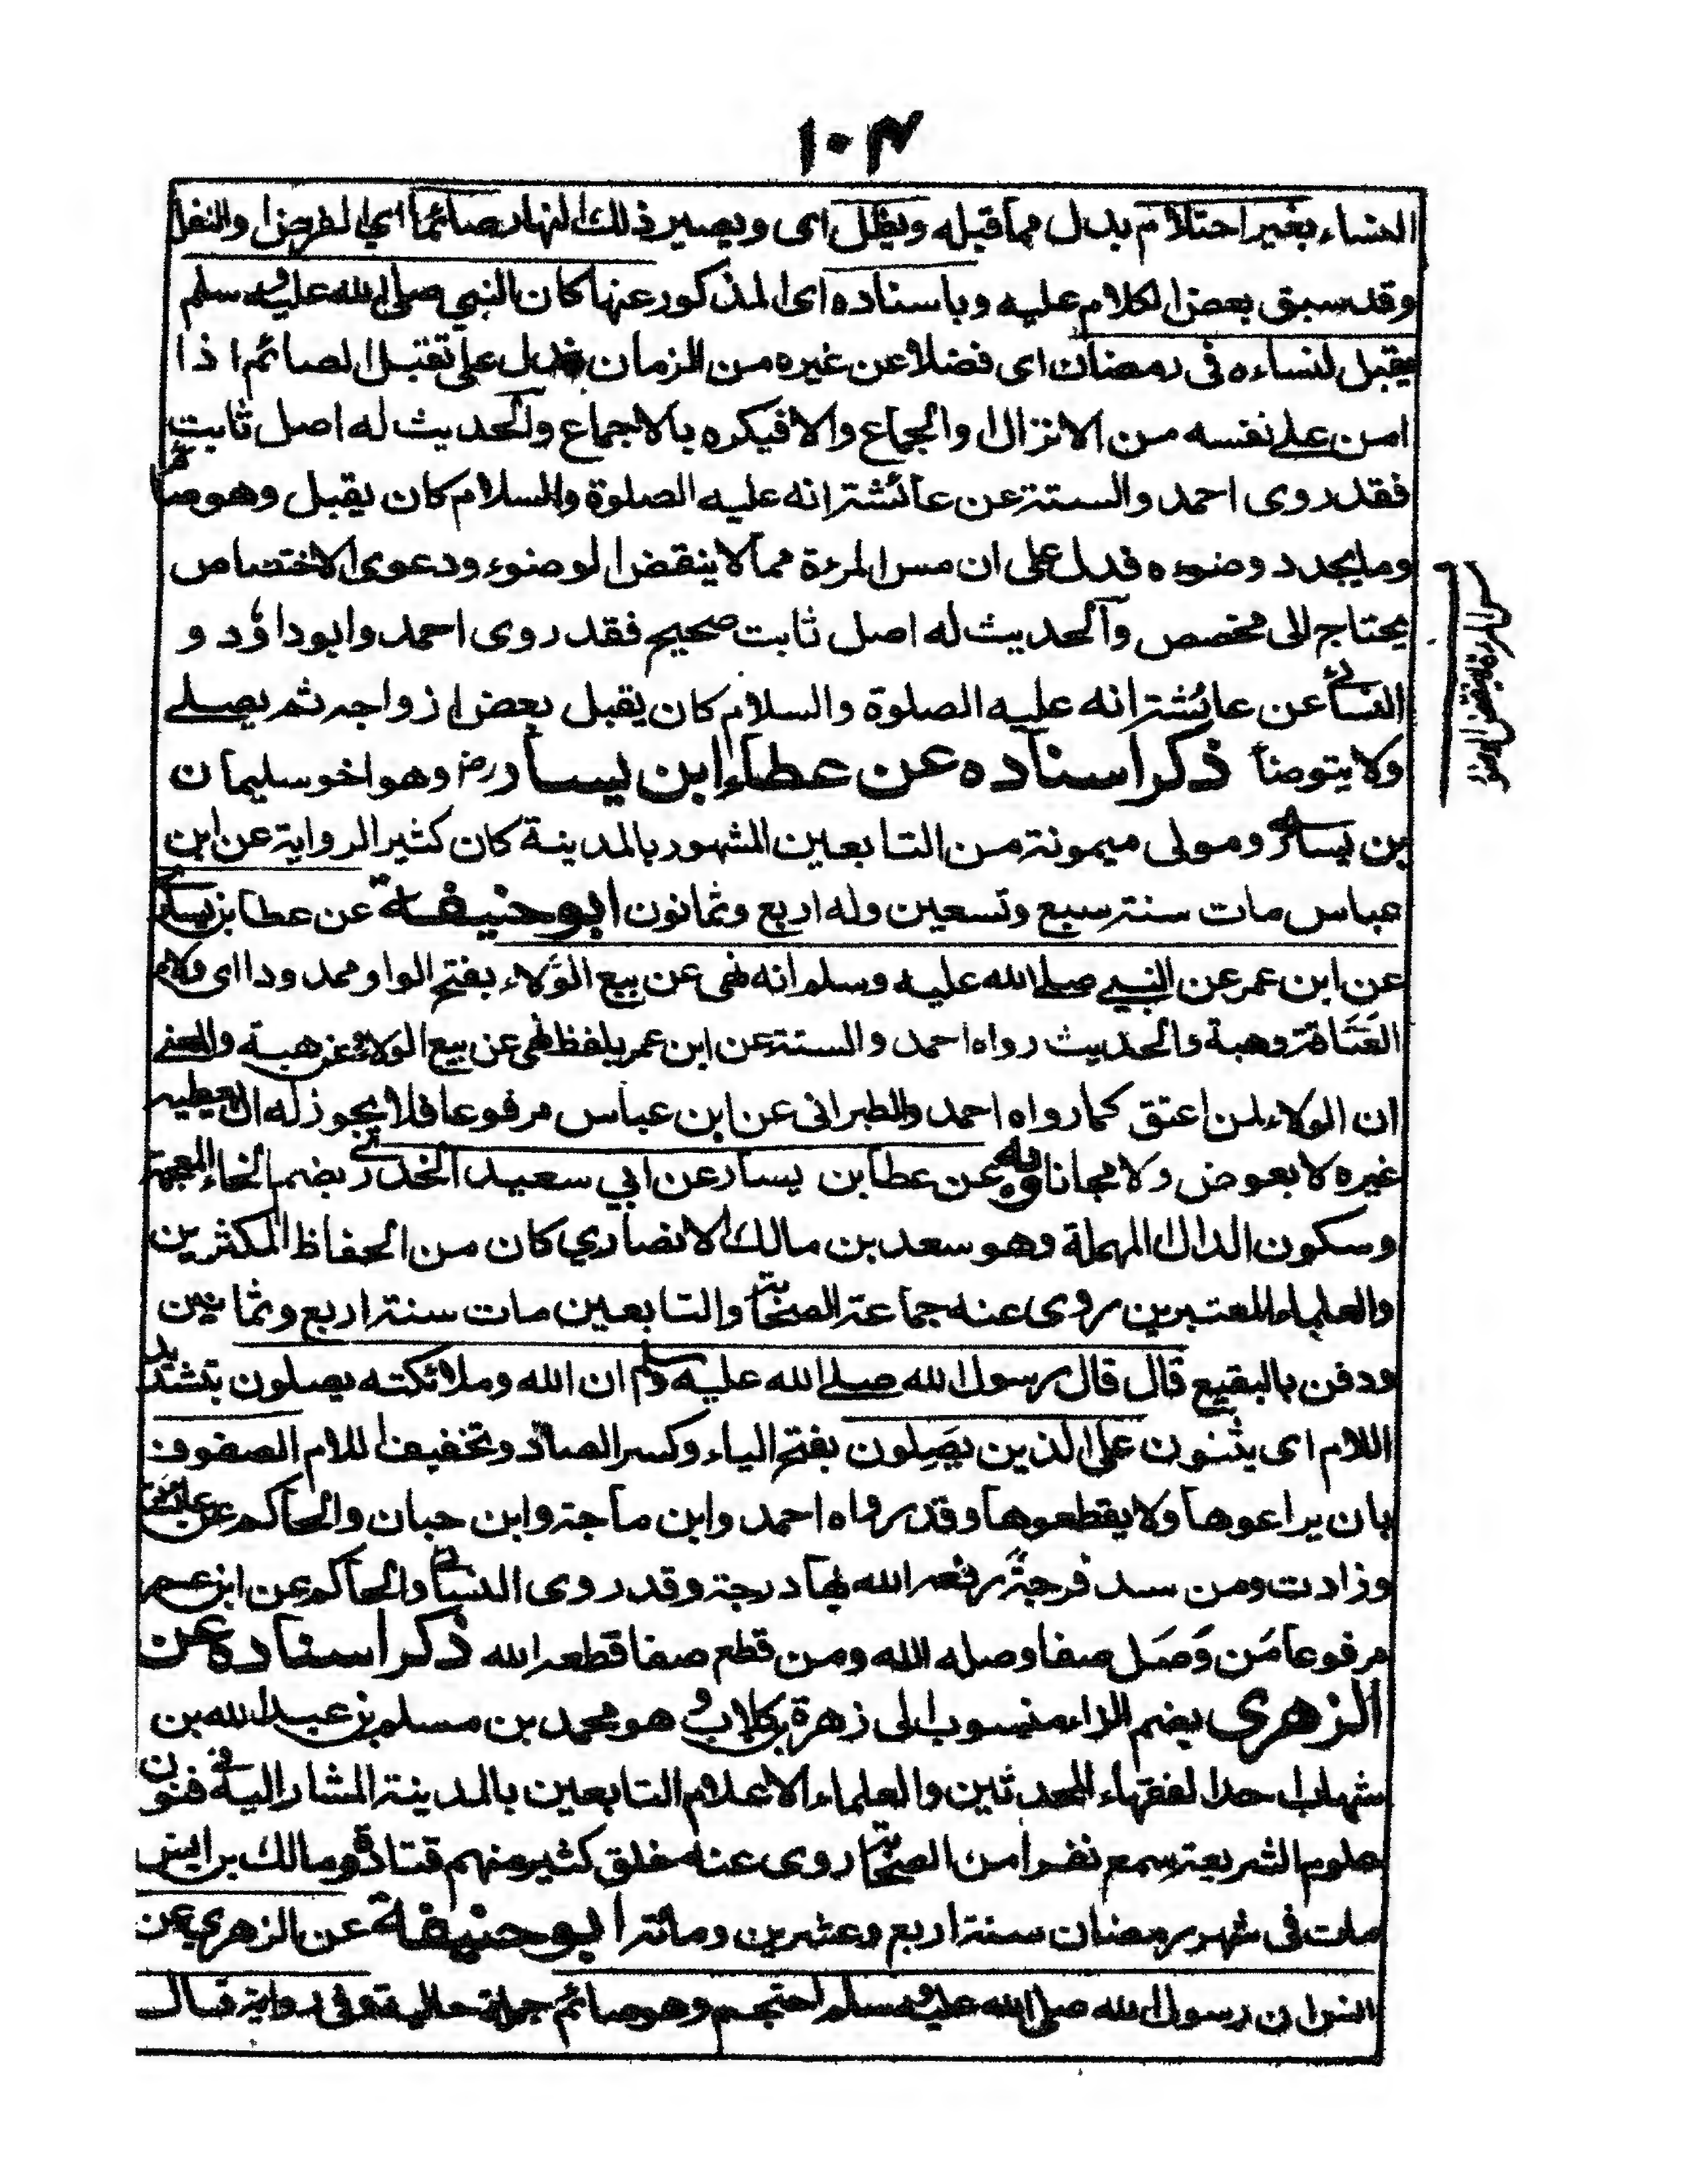 ١٠٤
النساء بغير احتلام بدل مما قبله ويظل اى ويصير ذلك النهار صائما اي الفرض او النفل
وقد سبق بعض الكلام عليه وباسناده اى المذكور عنها كان النبي صلى الله عليه وسلم
يقبل لنساءه فى رمضان اى فضلا عن غيره من الزمان فدل على تقبل الصائم اذا
امن على نفسه من الانزال والجماع والا فيكره بالاجماع والحديث له اصل ثابت
فقد روى احمد والستة عن عائشة انه عليه الصلوة والسلام كان يقبل وهو صائم
وما يجدد وضوءه فدل على ان مس المرءة مما لا ينقض الوضوء ودعوى الاختصاص
يحتاج الى مخصص والحديث له اصل ثابت صحيح فقد روى احمد وابوداؤد و
النسائى عن عائشة انه عليه الصلوة والسلام كان يقبل بعض ازواجه ثم يصلے
ولا يتوضأ ذكر اسناده عن عطاء ابن يسار رض وهو اخو سليمان
بن يسار ومولى ميمونة من التابعين المشهور بالمدينة كان كثير الرواية عن ابن
عباس مات سنة سبع وتسعين وله اربع وثمانون ابوحنيفة عن عطا بن يسار
عن ابن عمر عن النبي صلے الله عليه وسلم انه نهى عن بيع الوَلاء بفتح الواو ممدودا اى ولاء
العَتَاقة وهبة والحديث رواه احمد والستة عن ابن عمر بلفظ نهى عن بيع الولاء وعن هبة والمعنے
ان الولاء لمن اعتق كما رواه احمد والطبرانى عن ابن عباس مرفوعا فلا يجوز له ان يعطيه
غيره لا بعوض ولا مجانا وبه عن عطا بن يسار عن ابي سعيد الخدرى بضم الخاء المعجمة
وسكون الدال المهملة وهو سعد بن مالك الانصاري كان من الحفاظ المكثرين
والعلماء المعتبرين روى عنه جماعة الصحابة والتابعين مات سنة اربع وثمانين
ودفن بالبقيع قال قال رسول الله صلے الله عليه وسلم ان الله وملائكته يصلون بتشديد
اللام اى يثنون على الذين يصَلِون بفتح الياء وكسر الصاد وتخفيف اللام الصفوف
بان يراعوها ولا يقطعوها وقد رواه احمد وابن ماجة وابن حبان والحاكم عن عائشة
وزادت ومن سد فرجةً رفعه الله بها درجة وقد روى النسائى والحاكم عن ابن عمر
مرفوعا مَن وَصَل صفا وصله الله ومن قطع صفا قطعه الله ذكر اسناده عن
الزهرى بضم الزاء منسوب الى زهرة بن كلاب و هو محمد بن مسلم بن عبد الله بن
شهاب احد الفقهاء المحدثين والعلماء الاعلام التابعين بالمدينة المشار اليه فى فنون
علوم الشريعة سمع نفرا من الصحابة روى عنه خلق كثير منهم قتادة ومالك بن انس
مات فى شهر رمضان سنة اربع وعشرين ومائة ابوحنيفة عن الزهري عن
انس ان رسول الله صلى الله عليه وسلم احتجم وهو صائم جملة حالية وفى رواية قال